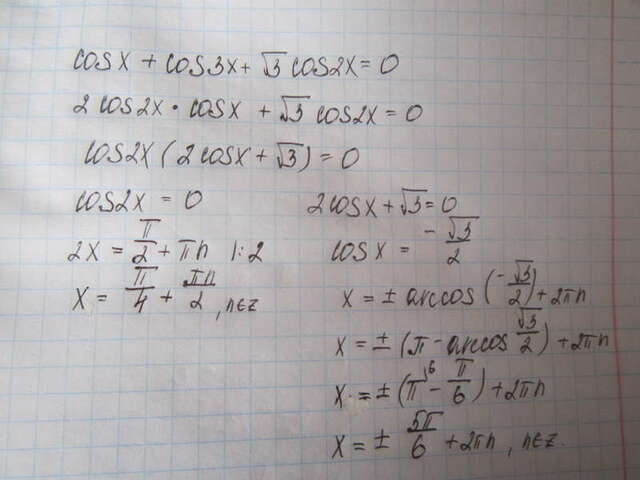 cosx + cos3x + √3 cos2x = 0
2 cos2x • cosx + √3 cos2x = 0
cos2x (2cosx + √3) = 0
cos2x = 0
2x = π/2 + πn |:2
x = π/4 + πn/2, n∈z
2cosx + √3 = 0
cosx = -√3/2
x = ± arccos(-√3/2) + 2πn
x = ± (π - arccos √3/2) + 2πn
x = ± (π\6 - π/6) + 2πn
x = ± 5π/6 + 2πn, n∈z.